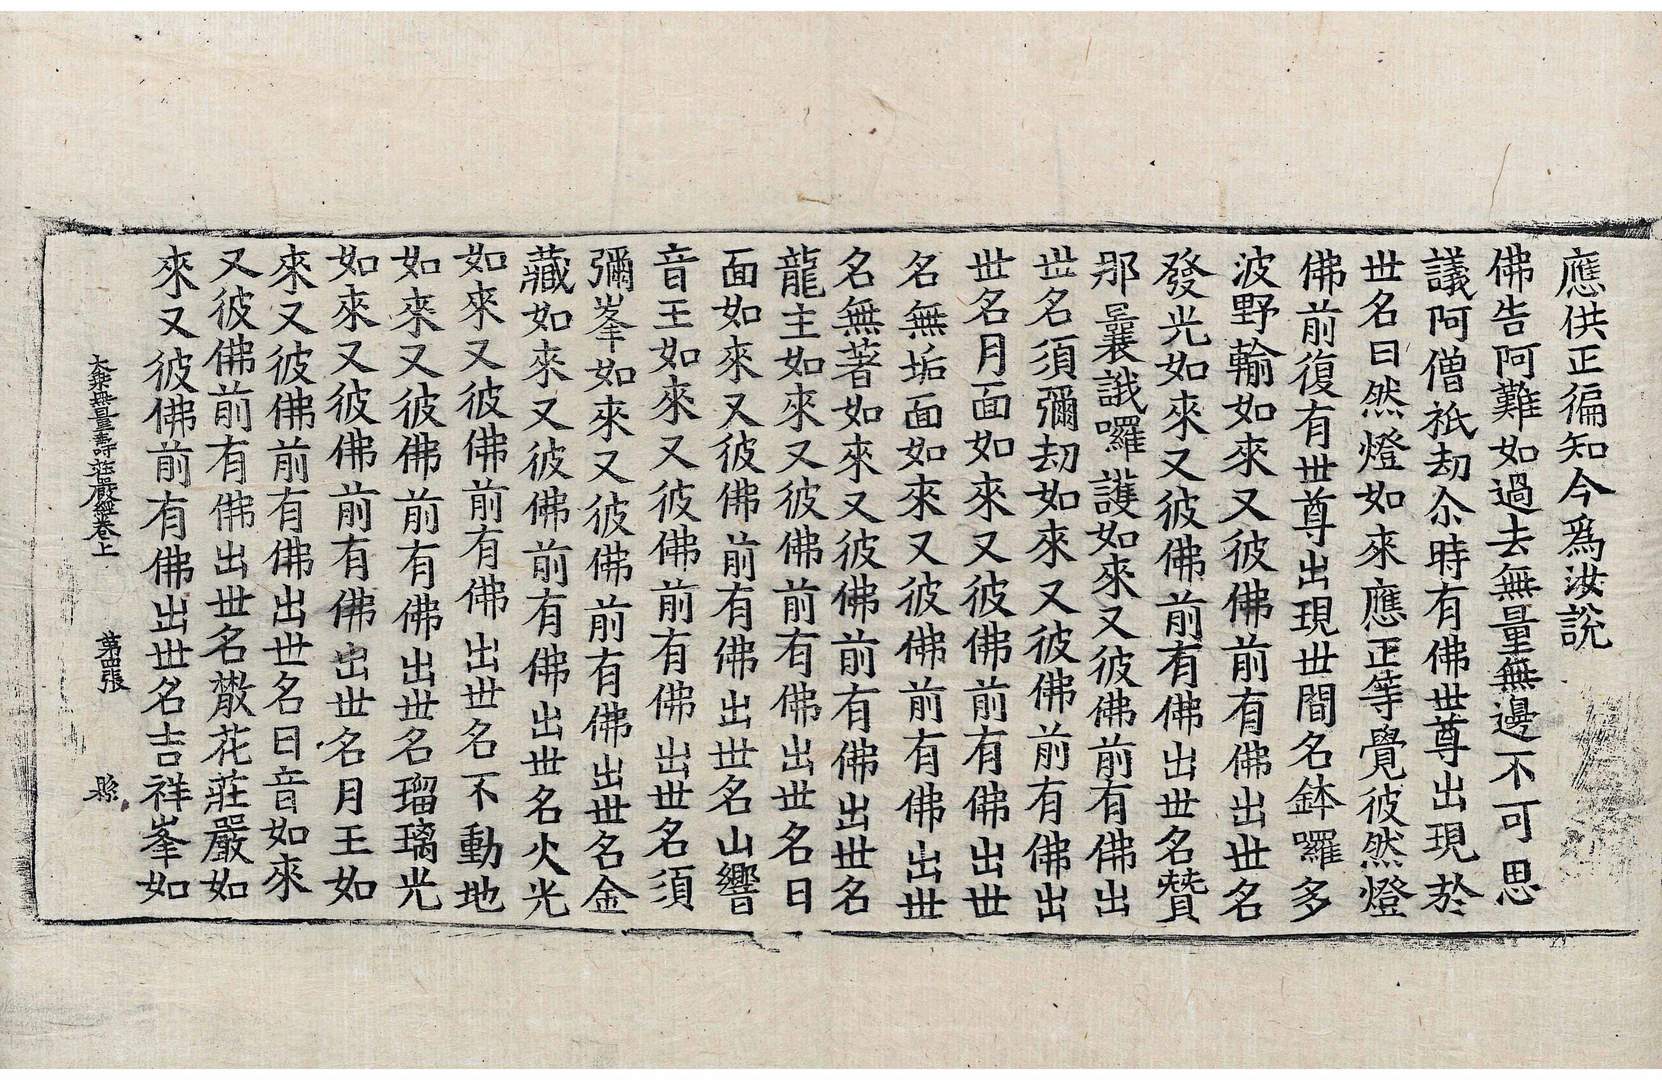 應供正徧知今爲汝說
佛告阿難如過去無量無邊不可思
議阿僧祇劫尒時有佛世尊出現於
世名曰然燈如來應正等覺彼然燈
佛前復有世尊出現世間名鉢囉多
波野輸如來又彼佛前有佛出世名
發光如來又彼佛前有佛出世名贊
那曩誐囉護如來又彼佛前有佛出
世名須彌劫如來又彼佛前有佛出
世名月面如來又彼佛前有佛出世
名無垢面如來又彼佛前有佛出世
名無著如來又彼佛前有佛出世名
龍主如來又彼佛前有佛出世名日
面如來又彼佛前有佛出世名山響
音王如來又彼佛前有佛出世名須
彌峯如來又彼佛前有佛出世名金
藏如來又彼佛前有佛出世名火光
如來又彼佛前有佛出世名不動地
如來又彼佛前有佛出世名瑠璃光
如來又彼佛前有佛出世名月王如
來又彼佛前有佛出世名日音如來
又彼佛前有佛出世名散花莊嚴如
來又彼佛前有佛出世名吉祥峯如
大乘無量壽莊嚴經卷上 第四張 縣